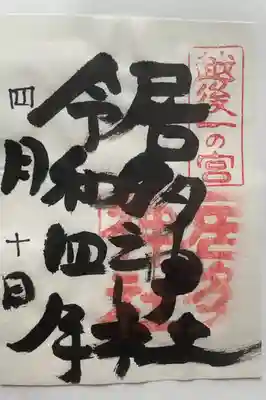 越後一の宮
居多神社
令和四年
四月十日
居多神社